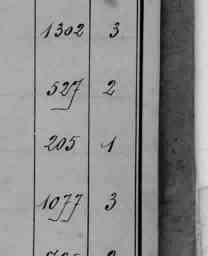 1302 3
527 2
205 1
1077 3